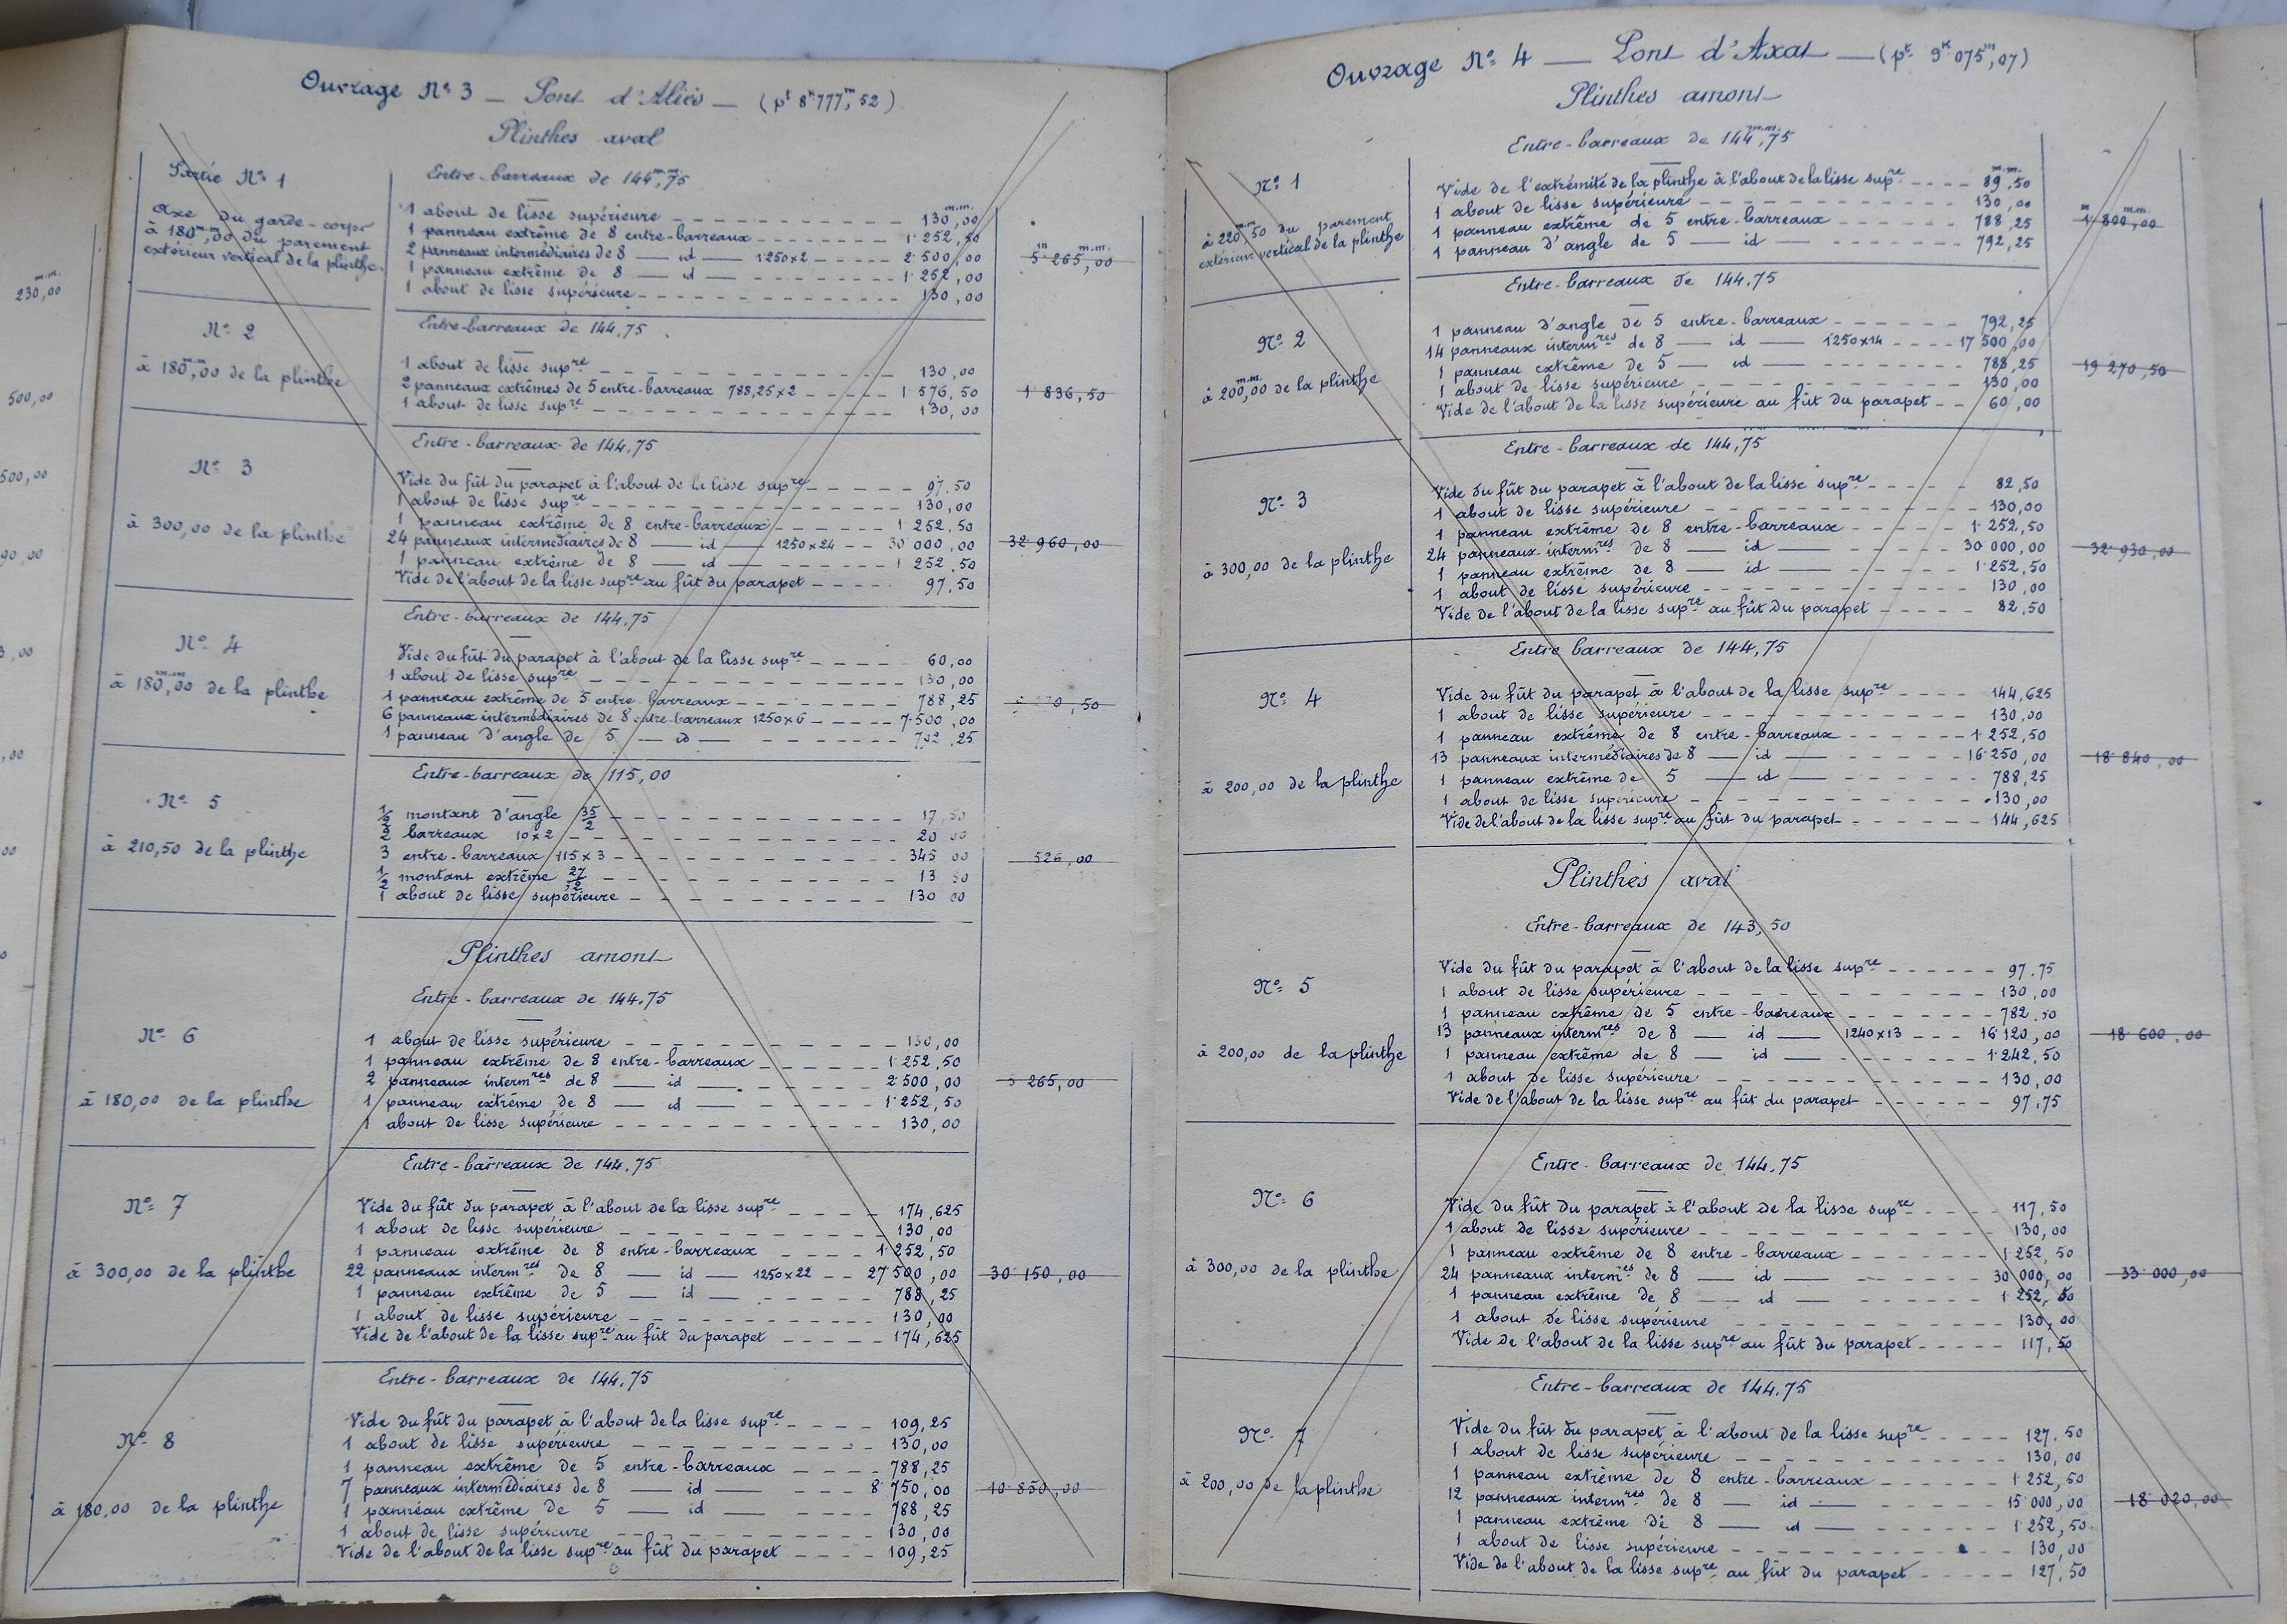 230,00
500,00
500,00
90,00
,00
00
Ouvrage N° 3 — Pont d'Aliès — (pt 8k777m,52)
Plinthes aval
Partie N° 1
Axe du garde-corps
à 180mm,00 du parement
extérieur vertical de la plinthe.
Entre-barreaux de 144mm,75
1 about de lisse supérieure — 130mm,00
1 panneau extrême de 8 entre-barreaux — 1 252,50
2 panneaux intermédiaires de 8 — id — 1250x2 — 2 500,00
1 panneau extrême de 8 — id — 1 252,00
1 about de lisse supérieure — 130,00
5m 265mm,00
N° 2
à 180mm,00 de la plinthe
Entre-barreaux de 144,75
1 about de lisse supre — 130,00
2 panneaux extrêmes de 5 entre-barreaux 788,25x2 — 1 576,50
1 about de lisse supre — 130,00
1 836,50
N° 3
à 300,00 de la plinthe
Entre-barreaux de 144,75
Vide du fût du parapet à l'about de la lisse supre — 97,50
1 about de lisse supre — 130,00
1 panneau extrême de 8 entre-barreaux — 1 252,50
24 panneaux intermédiaires de 8 — id — 1250x24 — 30 000,00
1 panneau extrême de 8 — id — 1 252,50
Vide de l'about de la lisse supre au fût du parapet — 97,50
32 960,00
N° 4
à 180mm,00 de la plinthe
Entre-barreaux de 144,75
Vide du fût du parapet à l'about de la lisse supre — 60,00
1 about de lisse supre — 130,00
1 panneau extrême de 5 entre-barreaux — 788,25
6 panneaux intermédiaires de 8 entre-barreaux 1250x6 — 7 500,00
1 panneau d'angle de 5 — id — 792,25
0,50
N° 5
à 210,50 de la plinthe
Entre-barreaux de 115,00
1/2 montant d'angle 35/2 — 17,50
2 barreaux 10x2 — 20 00
3 entre-barreaux 115x3 — 345 00
1/2 montant extrême 27/2 — 13 50
1 about de lisse supérieure — 130 00
526,00
Plinthes amont
N° 6
à 180,00 de la plinthe
Entre-barreaux de 144,75
1 about de lisse supérieure — 130,00
1 panneau extrême de 8 entre-barreaux — 1 252,50
2 panneaux intermres de 8 — id — 2 500,00
1 panneau extrême de 8 — id — 1 252,50
1 about de lisse supérieure — 130,00
5 265,00
N° 7
à 300,00 de la plinthe
Entre-barreaux de 144,75
Vide du fût du parapet à l'about de la lisse supre — 174,625
1 about de lisse supérieure — 130,00
1 panneau extrême de 8 entre-barreaux — 1 252,50
22 panneaux intermres de 8 — id — 1250x22 — 27 500,00
1 panneau extrême de 5 — id — 788,25
1 about de lisse supérieure — 130,00
Vide de l'about de la lisse supre au fût du parapet — 174,625
30 150,00
N° 8
à 180,00 de la plinthe
Entre-barreaux de 144,75
Vide du fût du parapet à l'about de la lisse supre — 109,25
1 about de lisse supérieure — 130,00
1 panneau extrême de 5 entre-barreaux — 788,25
7 panneaux intermédiaires de 8 — id — 8 750,00
1 panneau extrême de 5 — id — 788,25
1 about de lisse supérieure — 130,00
Vide de l'about de la lisse supre au fût du parapet — 109,25
10 850,00
Ouvrage N° 4 — Pont d'Axat — (pt 9k 075m,07)
Plinthes amont
N° 1
à 220mm,50 du parement
extérieur vertical de la plinthe
Entre-barreaux de 144mm,75
Vide de l'extrémité de la plinthe à l'about de la lisse supre — 89mm,50
1 about de lisse supérieure — 130,00
1 panneau extrême de 5 entre-barreaux — 788,25
1 panneau d'angle de 5 — id — 792,25
1m 800mm,00
N° 2
à 200mm,00 de la plinthe
Entre-barreaux de 144,75
1 panneau d'angle de 5 entre-barreaux — 792,25
14 panneaux intermres de 8 — id — 1250x14 — 17 500,00
1 panneau extrême de 5 — id — 788,25
1 about de lisse supérieure — 130,00
Vide de l'about de la lisse supérieure au fût du parapet — 60,00
19 270,50
N° 3
à 300,00 de la plinthe
Entre-barreaux de 144,75
Vide du fût du parapet à l'about de la lisse supre — 82,50
1 about de lisse supérieure — 130,00
1 panneau extrême de 8 entre-barreaux — 1 252,50
24 panneaux intermres de 8 — id — 30 000,00
1 panneau extrême de 8 — id — 1 252,50
1 about de lisse supérieure — 130,00
Vide de l'about de la lisse supre au fût du parapet — 82,50
32 930,00
N° 4
à 200,00 de la plinthe
Entre barreaux de 144,75
Vide du fût du parapet à l'about de la lisse supre — 144,625
1 about de lisse supérieure — 130,00
1 panneau extrême de 8 entre-barreaux — 1 252,50
13 panneaux intermédiaires de 8 — id — 16 250,00
1 panneau extrême de 5 — id — 788,25
1 about de lisse supérieure — 130,00
Vide de l'about de la lisse supre au fût du parapet — 144,625
18 840,00
Plinthes aval
N° 5
à 200,00 de la plinthe
Entre-barreaux de 143,50
Vide du fût du parapet à l'about de la lisse supre — 97,75
1 about de lisse supérieure — 130,00
1 panneau extrême de 5 entre-barreaux — 782,00
13 panneaux intermres de 8 — id — 1240x13 — 16 120,00
1 panneau extrême de 8 — id — 1 242,50
1 about de lisse supérieure — 130,00
Vide de l'about de la lisse supre au fût du parapet — 97,75
18 600,00
N° 6
à 300,00 de la plinthe
Entre-barreaux de 144,75
Vide du fût du parapet à l'about de la lisse supre — 117,50
1 about de lisse supérieure — 130,00
1 panneau extrême de 8 entre-barreaux — 1 252,50
24 panneaux intermres de 8 — id — 30 000,00
1 panneau extrême de 8 — id — 1 252,50
1 about de lisse supérieure — 130,00
Vide de l'about de la lisse supre au fût du parapet — 117,50
33 000,00
N° 7
à 200,00 de la plinthe
Entre-barreaux de 144,75
Vide du fût du parapet à l'about de la lisse supre — 127,50
1 about de lisse supérieure — 130,00
1 panneau extrême de 8 entre-barreaux — 1 252,50
12 panneaux intermres de 8 — id — 15 000,00
1 panneau extrême de 8 — id — 1 252,50
1 about de lisse supérieure — 130,00
Vide de l'about de la lisse supre au fût du parapet — 127,50
18 020,00